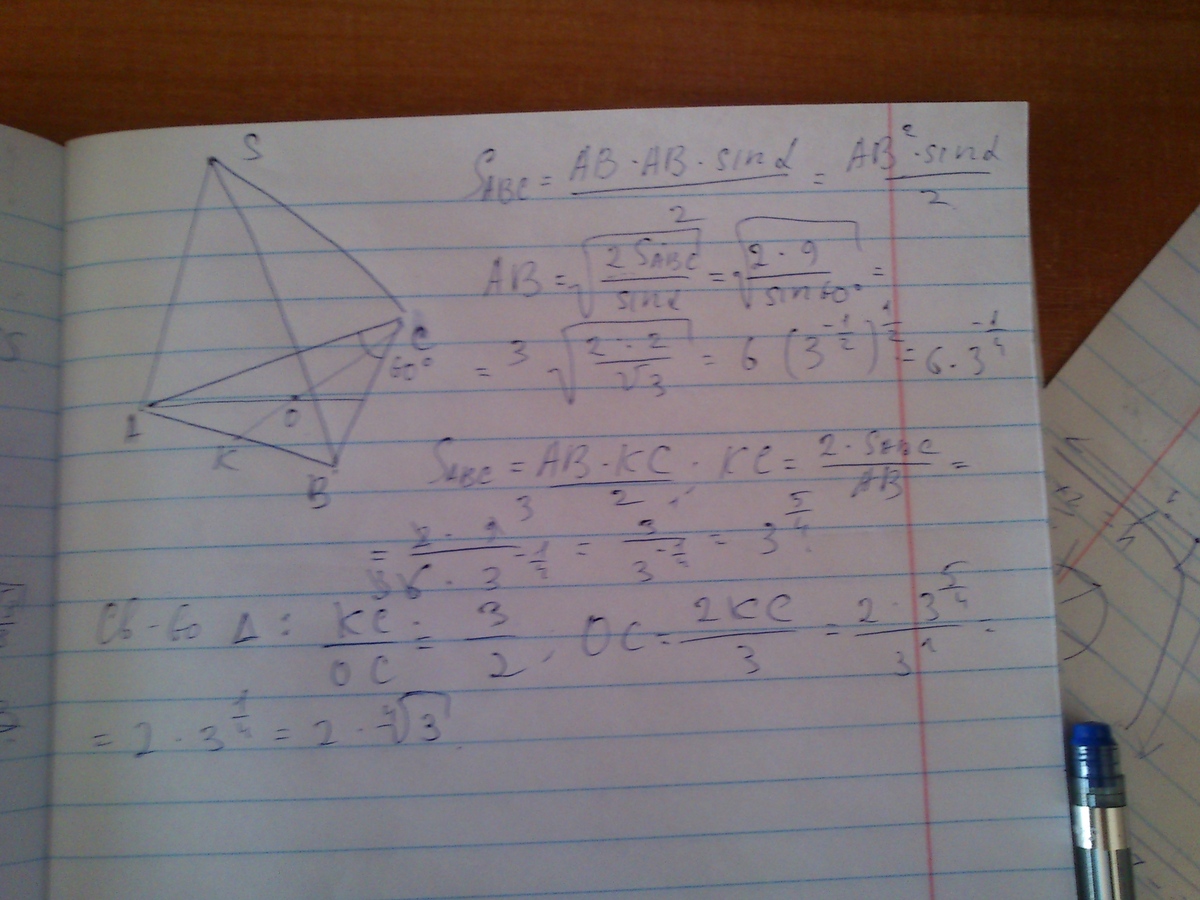 S
S_ABC = AB · AB · sin α / 2 = AB² · sin α / 2
AB = √(2 S_ABC / sin α) = √(2 · 9 / sin 60°) =
= 3 √(2 · 2 / √3) = 6 (3^(-1/2))^(1/2) = 6 · 3^(-1/4)
C
60°
A
O
K
B
S_ABC = AB · KC / 2 ; KC = 2 · S_ABC / AB =
= 2 · 9 / 6 · 3^(-1/4) = 3 / 3^(-1/4) = 3^(5/4)
Св-во Δ : KC / OC = 3 / 2 ; OC = 2KC / 3 = 2 · 3^(5/4) / 3^1 =
= 2 · 3^(1/4) = 2 · ⁴√3